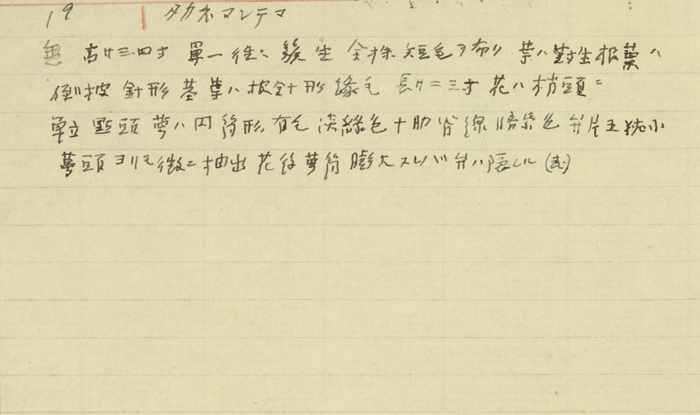 19 タカネマンテマ
無 高サ三四寸 單一往々 簇生 全株短毛ヲ布ク 葉ハ對生根葉ハ
倒披針形 莖葉ハ披針形緣毛 長サ二三寸 花ハ梢頭ニ
單立 點頭 萼ハ円筒形,有毛 淡綠色 十肋 脊線暗紫色 弁片五 狹小
萼頭ヨリモ微ニ抽出 花後萼筒膨大スレバ弁ハ隱ル